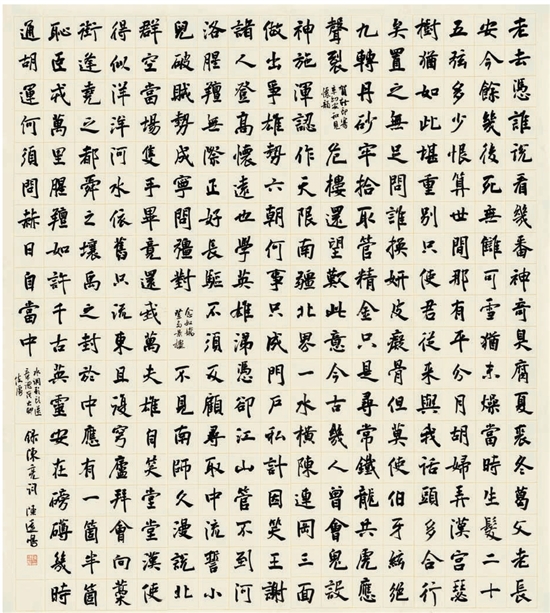 老去憑誰說看幾番神奇臭腐夏裘冬葛父老長
安今餘幾後死無讎可雪猶未燥當時生髮二十
五弦多少恨算世間那有平分月胡婦弄漢宮瑟
樹猶如此堪重別只使君從來與我話頭多合行
矣置之無足問誰換妍皮癡骨但莫使伯牙絃絕
九轉丹砂牢拾取管精金只是尋常鐵龍共虎應
聲裂
賀新郎寄
辛幼安和見
懷韻
危樓還望歎此意今古幾人曾會鬼設
神施渾認作天限南疆北界一水橫陳連岡三面
做出爭雄勢六朝何事只成門戶私計因笑王謝
諸人登高懷遠也學英雄涕憑卻江山管不到河
洛腥羶無際正好長驅不須反顧尋取中流誓小
兒破賊勢成寧問疆對
念奴嬌
登多景樓
不見南師久漫說北
群空當場隻手畢竟還我萬夫雄自笑堂堂漢使
得似洋洋河水依舊只流東且復穹廬拜會向藁
街逢堯之都舜之壤禹之封於中應有一箇半箇
恥臣戎萬里腥羶如許千古英靈安在磅礡幾時
通胡運何須問赫日自當中
水調歌頭送
章德茂大卿
使虜
錄陳亮詞